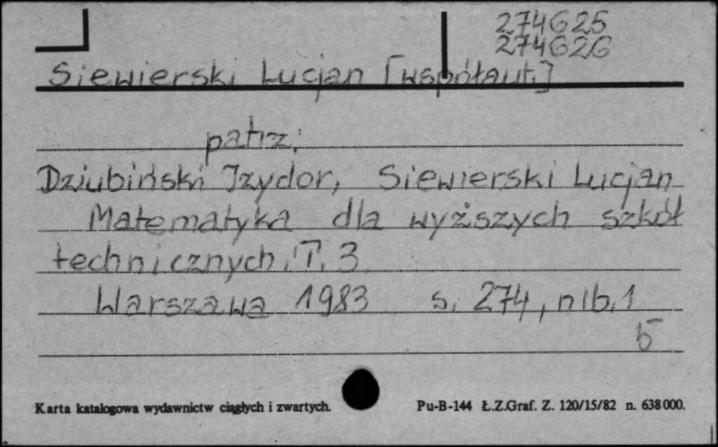 274625
274626
Siewierski Lucjan [współaut.]
patrz:
Dziubiński Izydor, Siewierski Lucjan
Matematyka dla wyższych szkół
technicznych. T. 3
Warszawa 1983 s. 274, nlb. 1
5
Karta katalogowa wydawnictw ciągłych i zwartych.
Pu-B-144 Ł.Z.Graf. Z. 120/15/82 n. 638 000.